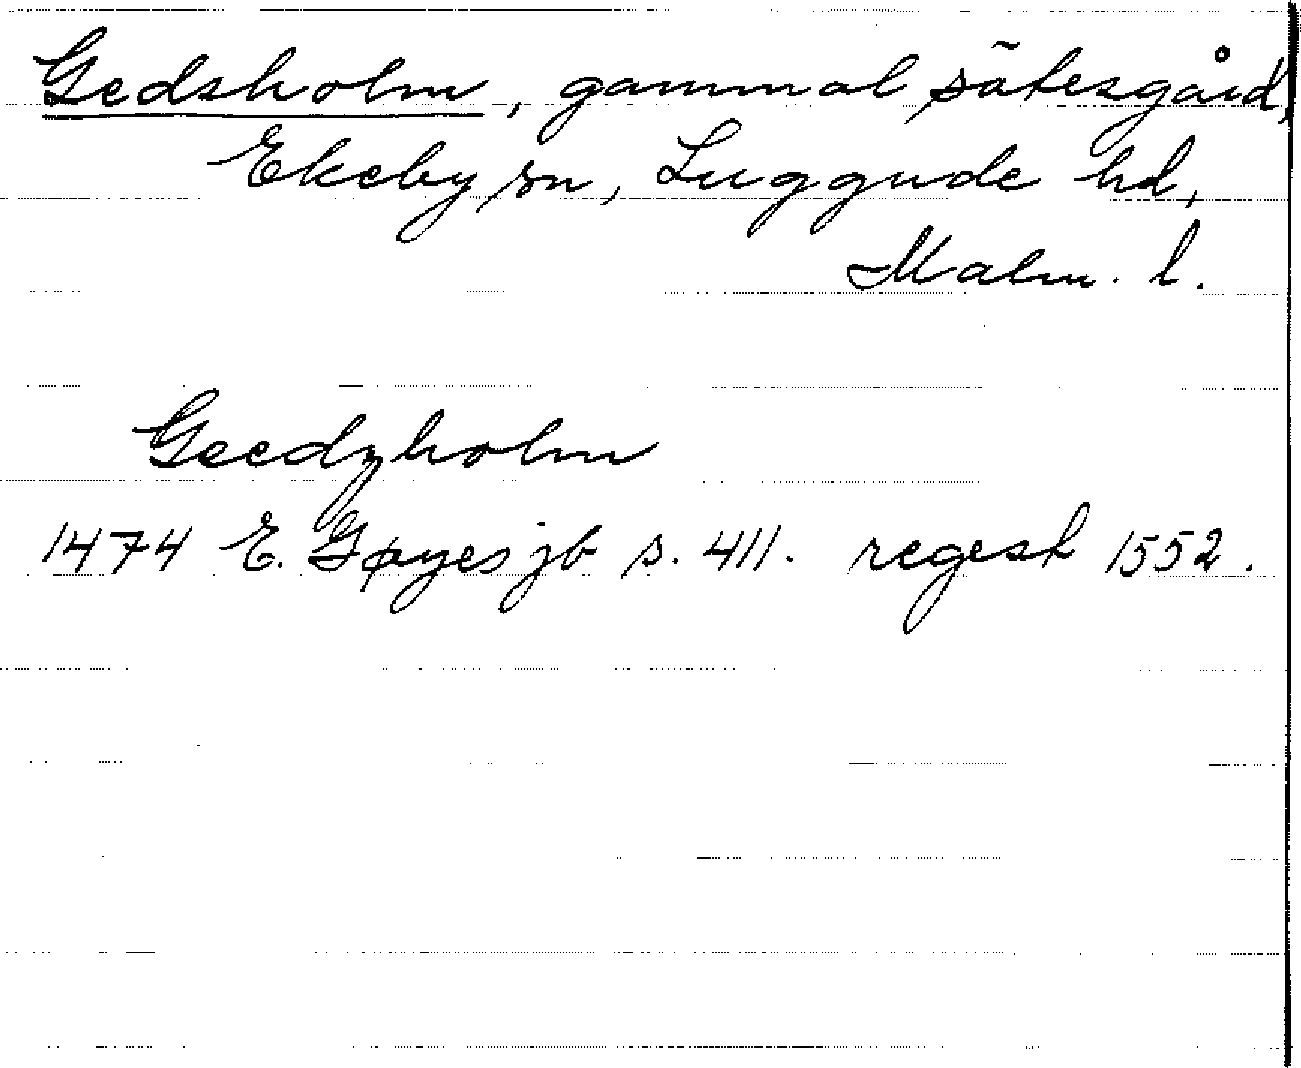 Gedsholm, gammal sätesgård,
Ekeby sn, Luggude hd,
Malm. l.
Geedzholm
1474 E. Gøyes jb s. 411. regest 1552.